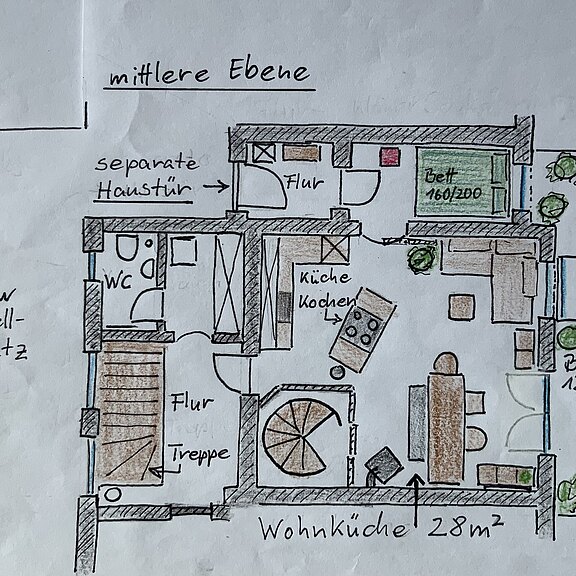 mittlere Ebene
separate
Haustür
Flur
Bett
160/200
WC
Küche
Kochen
Flur
Treppe
Wohnküche 28m²
ll-
tz